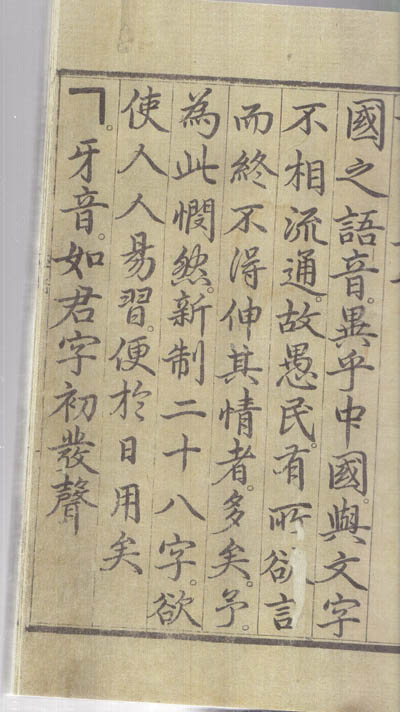 國之語音。異乎中國。與文字
不相流通。故愚民。有所欲言
而終不得伸其情者。多矣。予。
為此憫然。新制二十八字。欲
使人人易習。便於日用矣
ㄱ。牙音。如君字初發聲